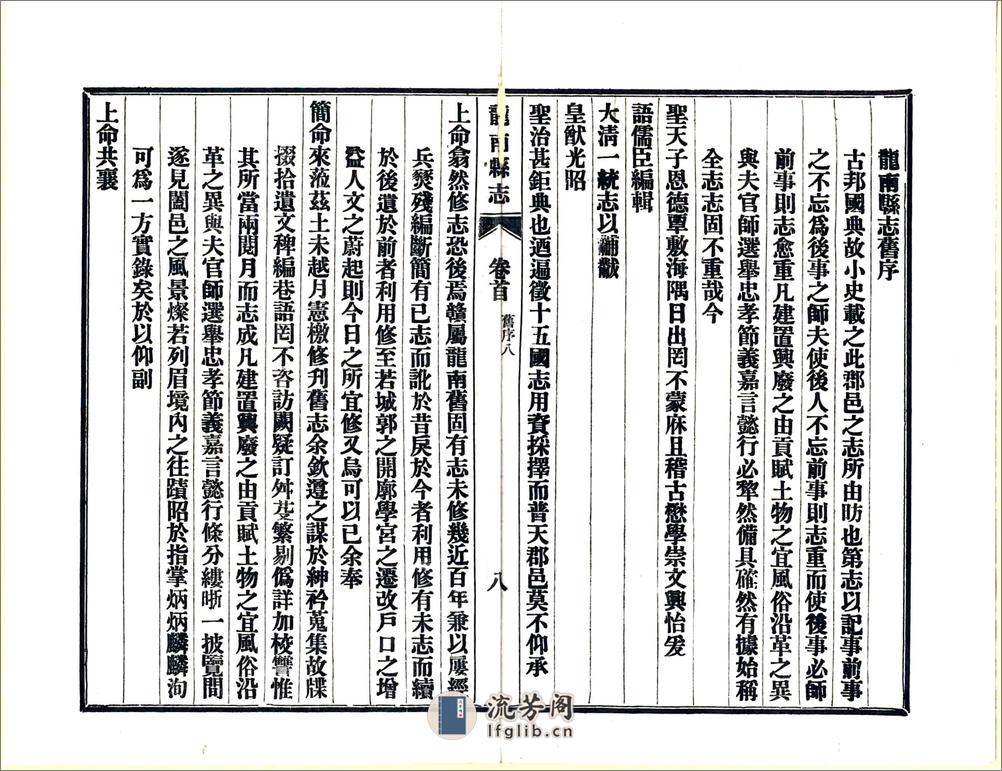 龍南縣志舊序
古邦國典故小史載之此郡邑之志所由昉也第志以記事前事
之不忘爲後事之師夫使後人不忘前事則志重而使後事必師
前事則志愈重凡建置興廢之由貢賦土物之宜風俗沿革之異
與夫官師選舉忠孝節義嘉言懿行必犂然備具確然有據始稱
全志志固不重哉今
聖天子恩德覃敷海隅日出罔不蒙庥且稽古懋學崇文興怡爰
語儒臣編輯
大淸一統志以黼黻
皇猷光昭
聖治甚鉅典也迺遍徵十五國志用資採擇而普天郡邑莫不仰承
龍南縣志
卷首
舊序八
八
上命翕然修志恐後焉贛屬龍南舊固有志未修幾近百年兼以屢經
兵燹殘編斷簡有已志而訛於昔戾於今者利用修有未志而續
於後遺於前者利用修至若城郭之開廓學宮之遷改戶口之增
益人文之蔚起則今日之所宜修又烏可以已余奉
簡命來蒞茲土未越月憲檄修刋舊志余欽遵之謀於紳衿蒐集故牒
掇拾遺文稗編巷語罔不咨訪闕疑訂舛芟繁剔僞詳加校讐惟
其所當兩閱月而志成凡建置興廢之由貢賦土物之宜風俗沿
革之異與夫官師選舉忠孝節義嘉言懿行條分縷晰一披覽間
遂見闔邑之風景燦若列眉境內之往蹟昭於指掌炳炳麟麟洵
可爲一方實錄矣於以仰副
上命共襄
流芳阁
lfglib.cn